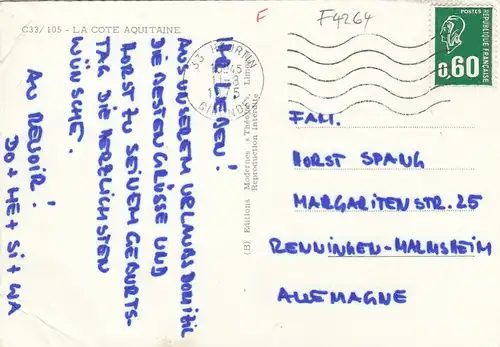 C33/105 - LA COTE AQUITAINE
F
F4264
HALLECHEN!
AUS UNSEREM URLAUBSDOMIZIL
DIE BESTEN GRÜSSE UND
HORST ZU SEINEM GEBURTS-
TAG DIE HERZLICHSTEN
WÜNSCHE.
AU REVOIR!
DO + HE + SI + WA
(B) Editions Modernes « Théojac »
Reproduction Interdite
33 HOURTIN
GIRONDE
POSTES
REPUBLIQUE FRANÇAISE
0,60
FAM.
HORST SPANG
MARGARITENSTR. 25
RENNINGEN-MALMSHEIM
ALLEMAGNE